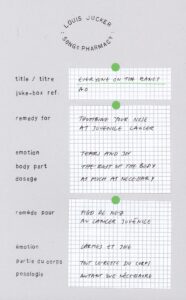 LOUIS JUCKER
SONGS PHARMACY
title / titre EVERYONE ON THE
juke-box ref.
remedy for YOUR NOSE
AT JUVENILE CANCER
emotion TEARS AND JOY
body part THE REST OF THE BODY
dosage AS MUCH AS NECESSARY
remède pour PIED DE NEZ
AU CANCER JUVÉNILE
émotion LARMES ET JOIE
partie du corps TOUT LE RESTE DU CORPS
posologie AUTANT QUE NÉCESSAIRE